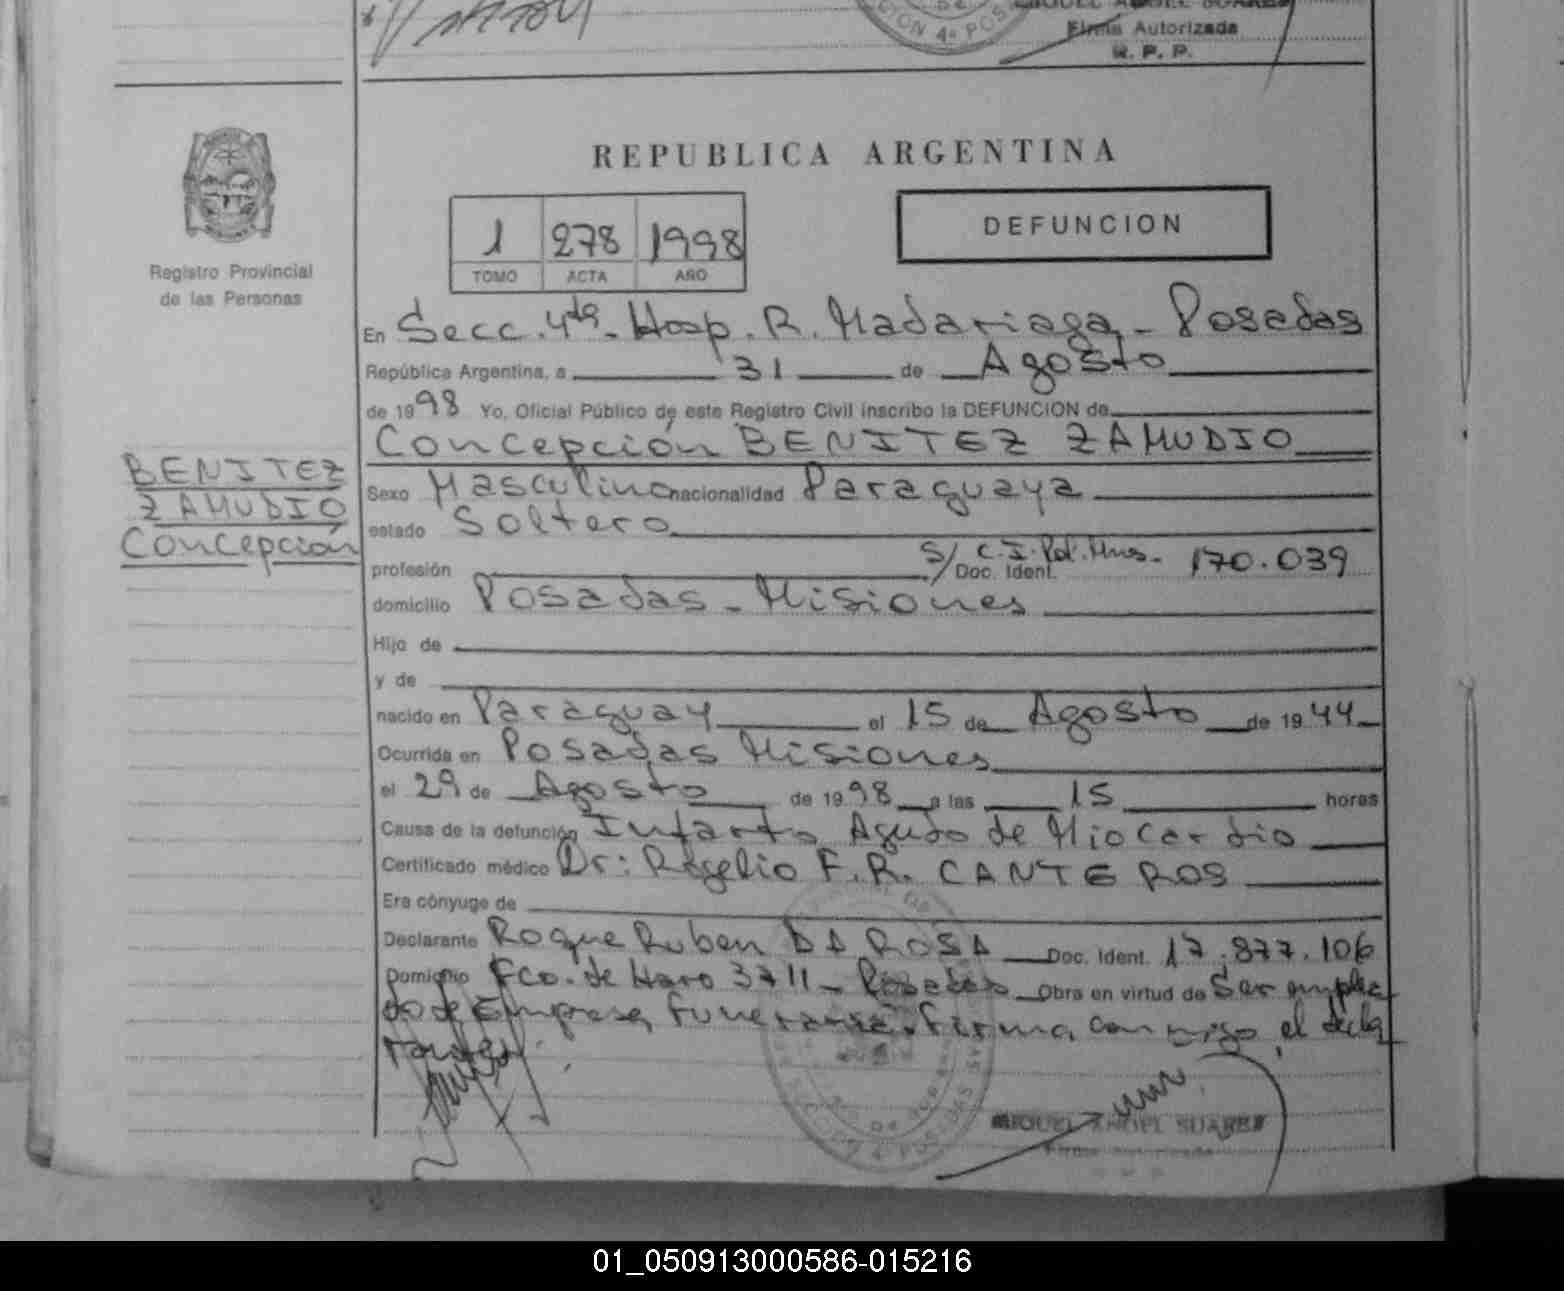 MIGUEL ANGEL SUAREZ
CION 4ª POS
Firma Autorizada
R. P. P.
REPUBLICA ARGENTINA
1 278 1998
TOMO ACTA AÑO
DEFUNCION
Registro Provincial
de las Personas
En Secc. 4ta. Hosp. R. Madariaga - Posadas
República Argentina, a 31 de Agosto
de 1998 Yo, Oficial Público de este Registro Civil inscribo la DEFUNCION de
Concepción BENITEZ ZAMUDIO
BENITEZ
ZAMUDIO
Concepción
Sexo Masculino nacionalidad Paraguaya
estado Soltero
profesión S/ Doc. Ident. C.I. Pol. Mnes. 170.039
domicilio Posadas - Misiones
Hijo de
y de
nacido en Paraguay el 15 de Agosto de 1944
Ocurrida en Posadas Misiones
el 29 de Agosto de 1998 a las 15 horas
Causa de la defunción Infarto Agudo de Miocardio
Certificado médico Dr: Rogelio F. R. CANTEROS
Era cónyuge de
Declarante Roque Ruben DA ROSA Doc. Ident. 17.877.106
Domicilio Fco. de Haro 3711 - Posadas Obra en virtud de Ser emplea
do de Empresa funeraria. firma conmigo el decla
rante.
MIGUEL ANGEL SUAREZ
Firma Autorizada
R. P. P.
01_050913000586-015216